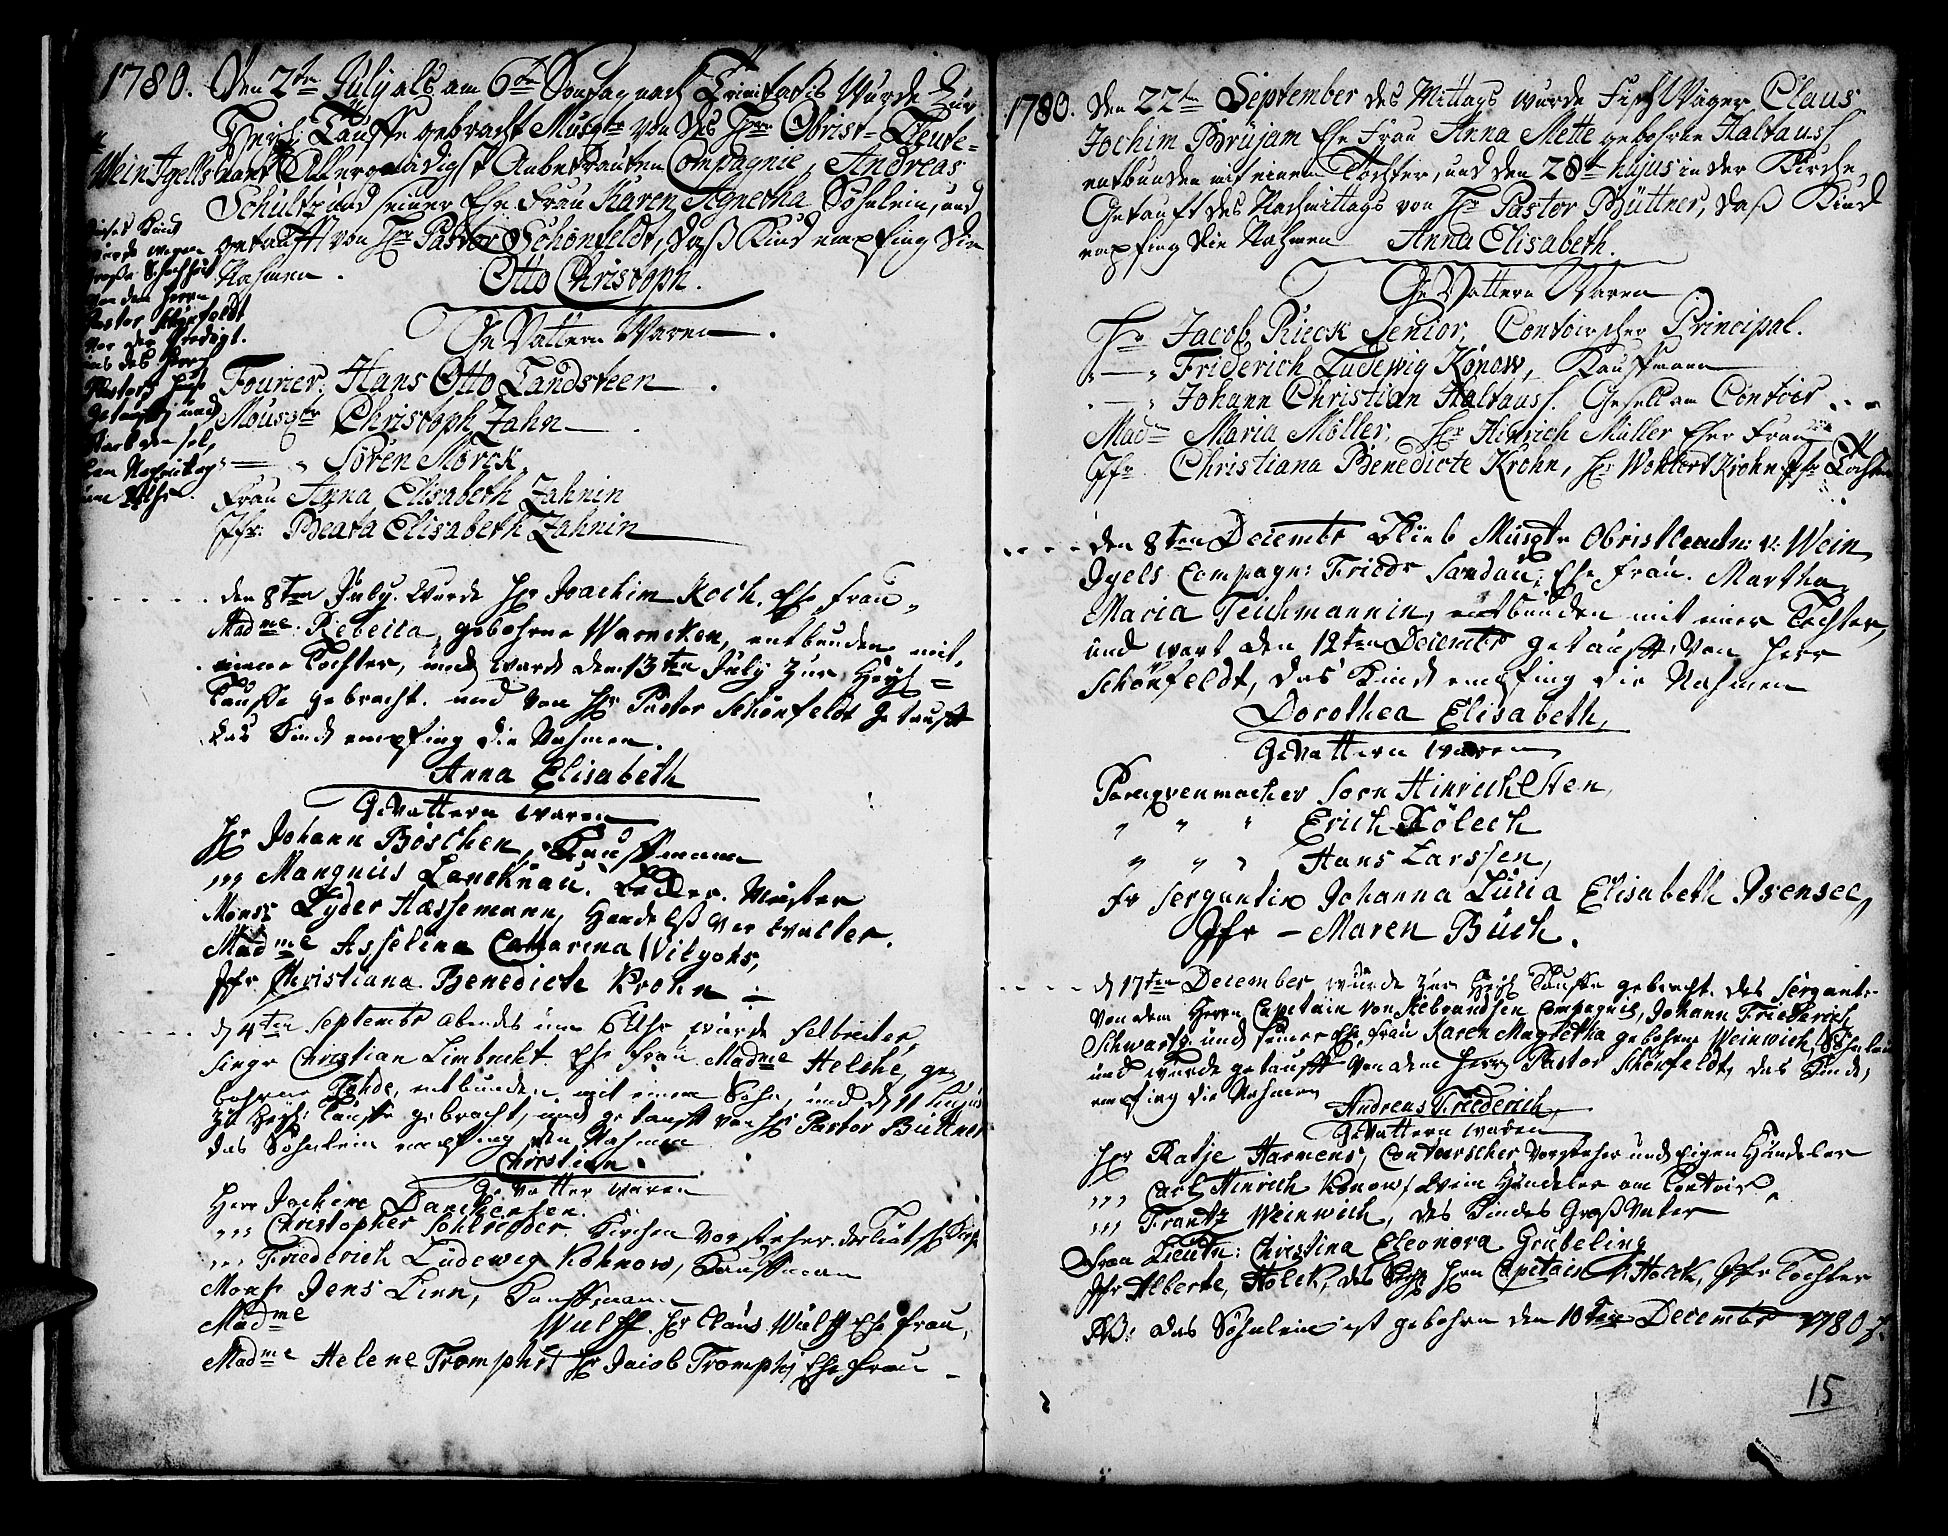 1780. Den 2ten July als am 6ten Sontag nach Trinitatis Wurde Zur
Heyl: Tauffe gebracht Musqtr von des Hrn Obrist-Leute-
nant Allergnädigst Anbetrauten Compagnie, Andreas
Schultz und seiner Ehe Frau Karen Agnetha Söhnlein, und
getaufft von Hr Pastor Schönfeldt, daß Kind empfing die
Nahmen.
Otto Christoph.
v. Wein Igells
dieses Kind
wurde wegen
große Schwachheit
von dem Herrn
Pastor Schönfeldt
vor der Predigt
Pastors
getaufft und
starb den sel,
ben Nachmittag
um Uhr.
GeVattern Waren.
Fourier. Hans Otto Landsteen.
Mousqtr Christoph Zahn
— " Sören Mörck
Frau Anna Elisabeth Zahnin
Jfr: Beata Elisabeth Zahnin
den 8ten July. Wurde Hr Joachim Koch. Ehe Frau,
Madme. Rebecca, gebohrne Warneken, entbunden mit
einer Tochter, und ward den 13ten July zur Heyl=
Tauffe gebracht. und von Hr Pastor Schönfeldt getaufft
das Kind empfing die Nahmen.
Anna Elisabeth
Gevattern waren
Hr Johann Böschen, Kauffmann
,,, Mangnus Lancknau. Meister
Monsr Lyder Hassemann, Handelß verwalter.
Madme Asselina Catharina Wilgohs,
Jfr Christiana Benedicte Krohn
d 4ten Septembr Abendes um 6 Uhr wurde
Christian Limbrecht Ehe Frau Madme Helche, ge,
bohrne Tohde, entbunden mit einem Sohn, und d 11 hujus
zu Heyl: Tauffe gebracht, und getaufft von Hr Pastor Büttner
das Söhnlein empfing den Nahmen
Christian.
Gevatter waren
Herr Jochim Danckersen.
,,, Christopher Kirchen Vorsteher
,,, Friederich Ludewig Kohnow, Kauffmann
Monsr Jens Linn, Kauffmann
Madme Wulff. Hr Claus Wulff Ehe Frau,
Madme Helene Hr Jacob Ehe Frau
1780. Den 22ten September des Mittags wurde Fisch Wäger Claus
Jochim Brüjam Ehe Frau Anna Mette gebohrne Haltauss
entbunden mit einem Tochter, und den 28ten hujus in der Kirche
Getauft des Nachmittags von Hr Pastor Büttner, daß Kind
empfing die Nahmen Anna Elisabeth.
GeVattern Waren
Hr Jacob Rieck Senior, Contoirscher Principal.
" — " Friderich Ludewig Konow, Kauffmann
" — " Johann Christian Haltauss. Gesell am Contoir
Made Maria Möller, Hr Hinrich Müller Ehe Frau
Jfr Christiana Benedicte Krohn, Hr Wohlert Krohn Jfr Tochter
den 8ten Decembr Musqtr Obristleutn: v: Wein
Igels Compagn: Friedr Sandau, Ehe Frau. Martha
Maria Teichmannin, entbunden mit einer Tochter,
und wart den 12ten Decembr getaufft, von Herr
Schönfeldt, das Kind empfing die Nahmen
Dorothea Elisabeth,
Gevattern waren
Parugvenmacher Sorn Hinrichsten,
" " " Erich Kölech
" " " Hans Larssen,
Fr Sergantin Johanna Lucia Elisabeth Isensee,
Jfr — Maren Büch.
d 17ten December wurde zur Heyl Tauffe gebracht des Sergant
von dem Herrn Capitain von Compagnie, Johann Friederich
Schwartz und seiner Ehe Frau Karen Magretha gebohrne Weinwich, Söhnlein
und wurde getaufft von dem Herrn Pastor Schönfeldt, das Kind,
empfing die Nahmen
Andreas Friederich,
Gevattern waren
Hr Ratje Harmens, Contoirscher Vorsteher und Eigen Händeler
,,, Carl Hinrich Konow, Wein Händeler am Contoir,
,,, Frantz Weinwich, des Kindes Groß Vater
Frau Lieutn: Christina Eleonora Grubeling
Jfr Alberte, Holck, des Hrn Capitain v. Holck, Jfr Tochter
NB: das Söhnlein ist gebohrn den 10ten Decembr 1780
15